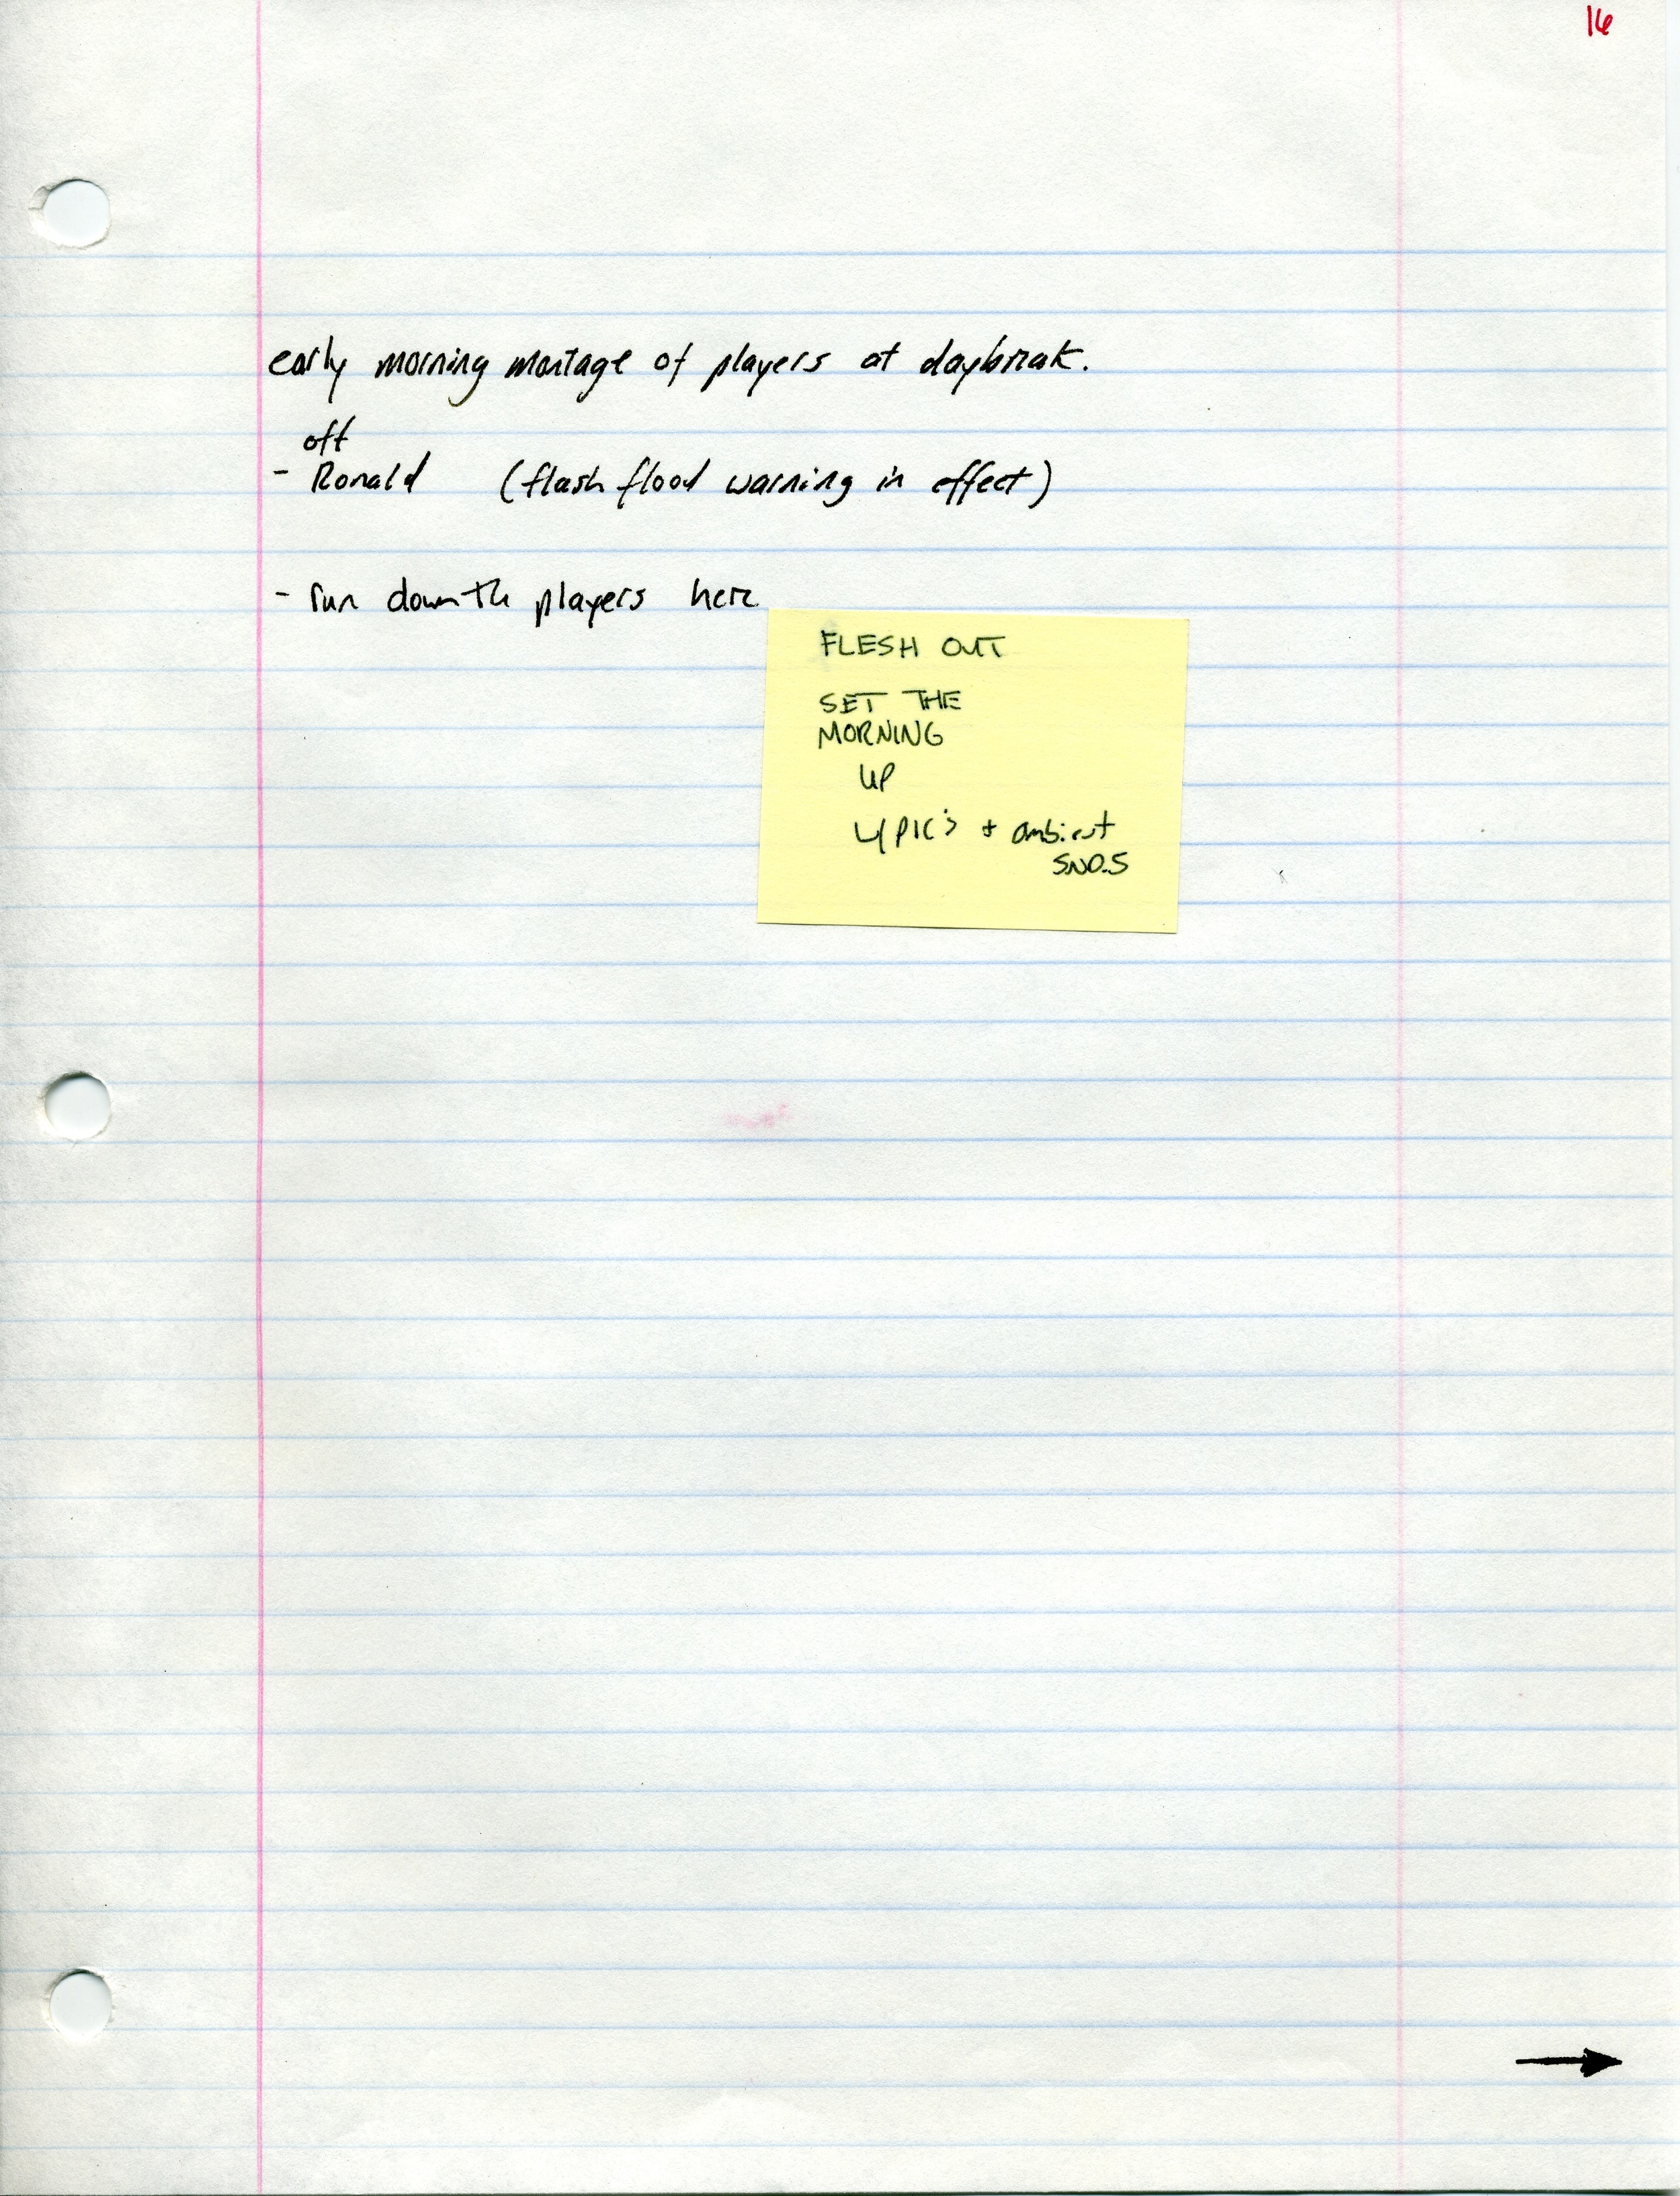 16
early morning montage of players at daybreak.
off
- Ronald (flash flood warning in effect)
- run down the players here
FLESH OUT
SET THE
MORNING
UP
w/ PIC's + ambient
SND.S